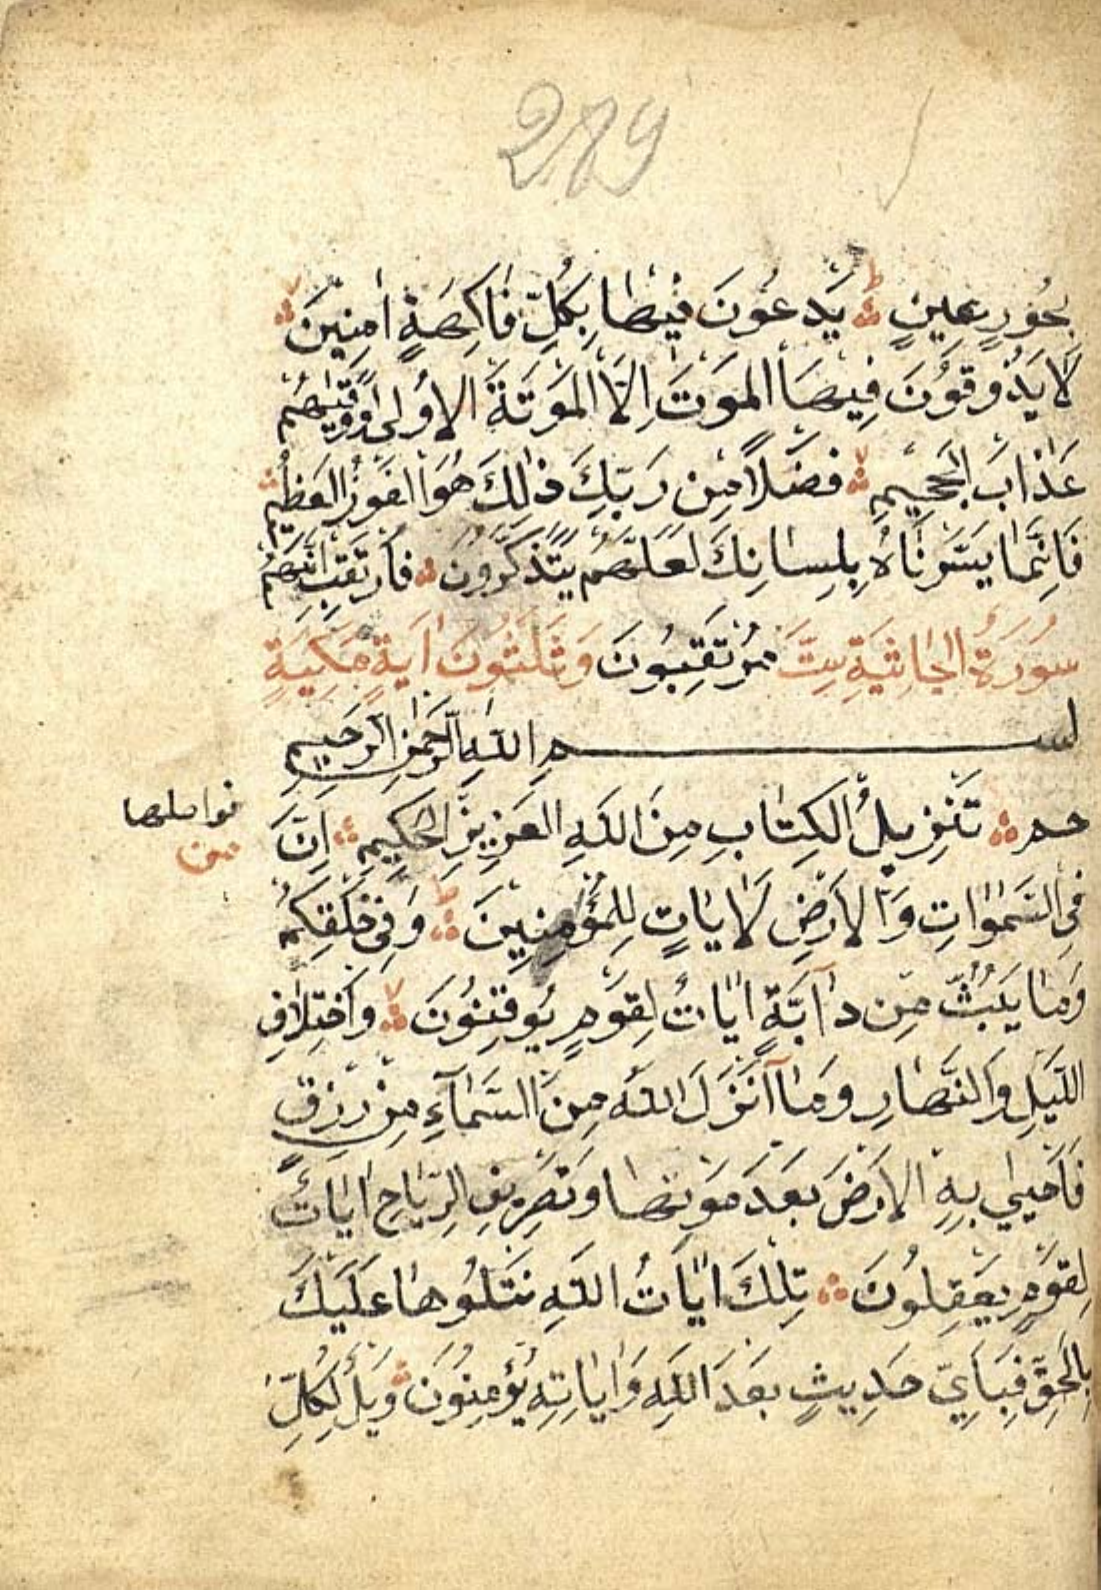 289
بِحُورٍ عِينٍ ۞ يَدْعُونَ فِيهَا بِكُلِّ فَاكِهَةٍ اٰمِنِينَ ۞
لَا يَذُوقُونَ فِيهَا الْمَوْتَ اِلَّا الْمَوْتَةَ الْاُولٰى وَوَقٰيهُمْ
عَذَابَ الْجَحِيمِ ۞ فَضْلًا مِنْ رَبِّكَ ذٰلِكَ هُوَ الْفَوْزُ الْعَظِيمُ ۞
فَاِنَّمَا يَسَّرْنَاهُ بِلِسَانِكَ لَعَلَّهُمْ يَتَذَكَّرُونَ ۞ فَارْتَقِبْ اِنَّهُمْ
سُورَةُ الْجَاثِيَةِ سِتَّ مُرْتَقِبُونَ وَثَلٰثُونَ اٰيَةٍ مَكِّيَةٍ
بسم اللهِ الرَّحْمٰنِ الرَّحِيمِ
حم ۞ تَنْزِيلُ الْكِتَابِ مِنَ اللهِ الْعَزِيزِ الْحَكِيمِ ۞ اِنَّ
فواصلها
من
فِي السَّمٰوَاتِ وَالْاَرْضِ لَاٰيَاتٍ لِلْمُؤْمِنِينَ ۞ وَفِي خَلْقِكُمْ
وَمَا يَبُثُّ مِنْ دَابَّةٍ اٰيَاتٌ لِقَوْمٍ يُوقِنُونَ ۞ وَاخْتِلَافِ
اللَّيْلِ وَالنَّهَارِ وَمَا اَنْزَلَ اللهُ مِنَ السَّمَاءِ مِنْ رِزْقٍ
فَاَحْيٰي بِهِ الْاَرْضَ بَعْدَ مَوْتِهَا وَتَصْرِيفِ الرِّيَاحِ اٰيَاتٌ
لِقَوْمٍ يَعْقِلُونَ ۞ تِلْكَ اٰيَاتُ اللهِ نَتْلُوهَا عَلَيْكَ
بِالْحَقِّ فَبِاَيِّ حَدِيثٍ بَعْدَ اللهِ وَاٰيَاتِهِ يُؤْمِنُونَ ۞ وَيْلٌ لِكُلِّ